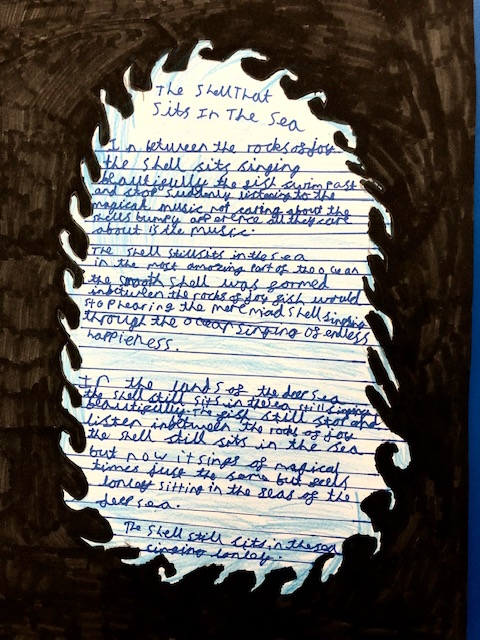 The Shell That
Sits In The Sea
In between the rocks of joy
the shell sits singing
beautifully the fish swim past
and stop suddenly listening to the
magical music not caring about the
shells bumpy apperence all they care
about is the music.
The shell still sits in the sea
in the most amazing part of the ocean
the smooth shell was formed
inbetween the rocks of joy fish would
stop hearing the mermiad shell singing
through the ocean singing of endless
happieness.
In the lands of the deep sea
the shell still sits in the sea still singing
beautifully. The fish still stop and
listen inbetween the rocks of joy
the shell still sits in the sea
but now it sings of magical
times just the same but feels
lonley sitting in the seas of the
deep sea.
The shell still sits in the sea
singing lonley.